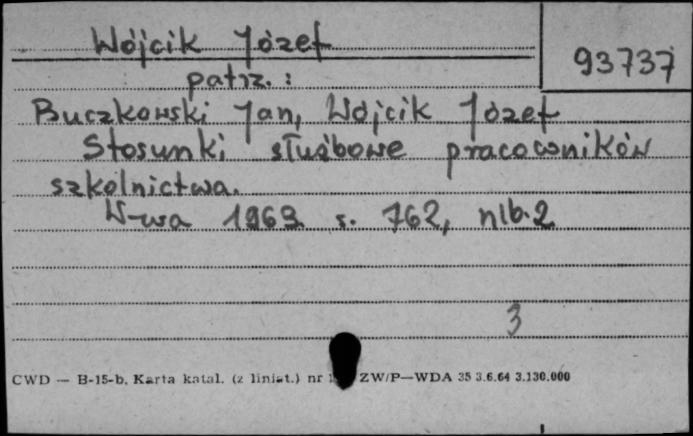 Wójcik Józef
93737
patrz.:
Buczkowski Jan, Wójcik Józef
Stosunki służbowe pracowników
szkolnictwa.
W-wa 1963. s. 762, nlb. 2
3
CWD — B-15-b, Karta katal. (z liniat.) nr ZW/P—WDA 35 3.6.64 3.130.000